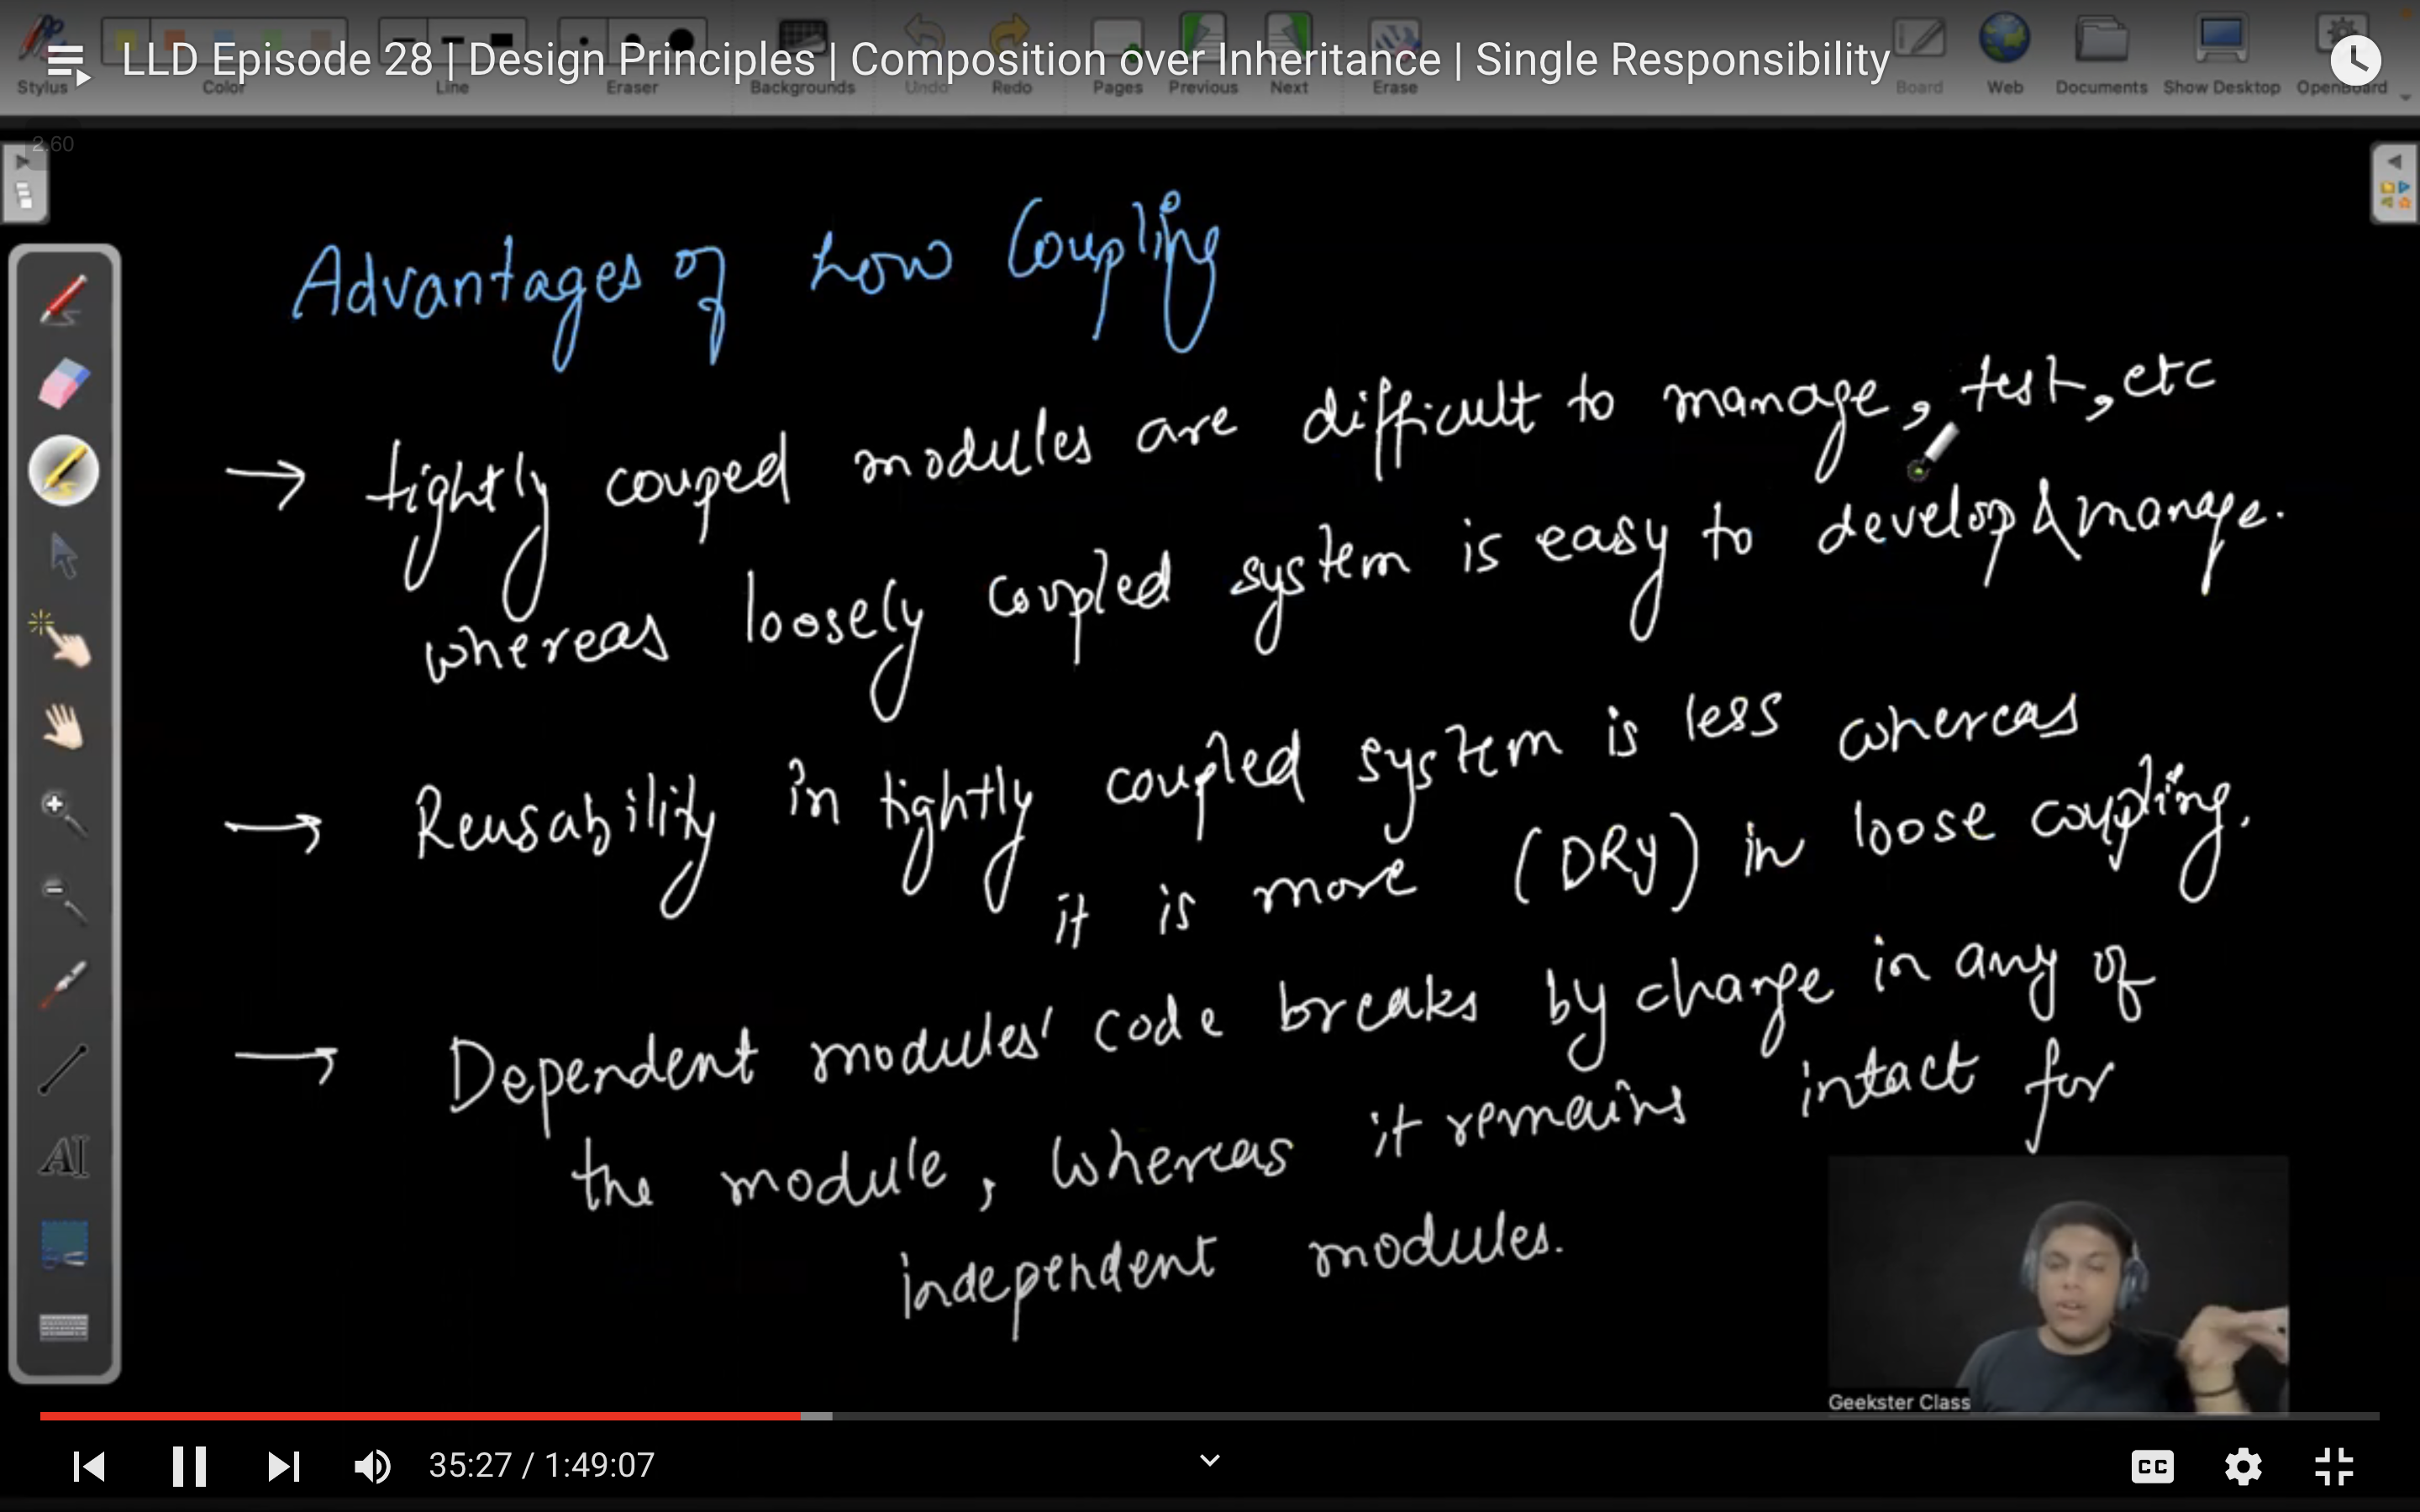 LLD Episode 28 | Design Principles | Composition over Inheritance | Single Responsibility
Stylus Color Line Eraser Backgrounds Undo Redo Pages Previous Next Erase Board Web Documents Show Desktop OpenBoard
2.60
Advantages of Low Coupling
→ tightly couped modules are difficult to manage, test, etc
whereas loosely coupled system is easy to develop & manage.
→ Reusability in tightly coupled system is less whereas
it is more (DRY) in loose coupling.
→ Dependent modules' code breaks by change in any of
the module, whereas it remains intact for
independent modules.
AI
Geekster Class
35:27 / 1:49:07
CC